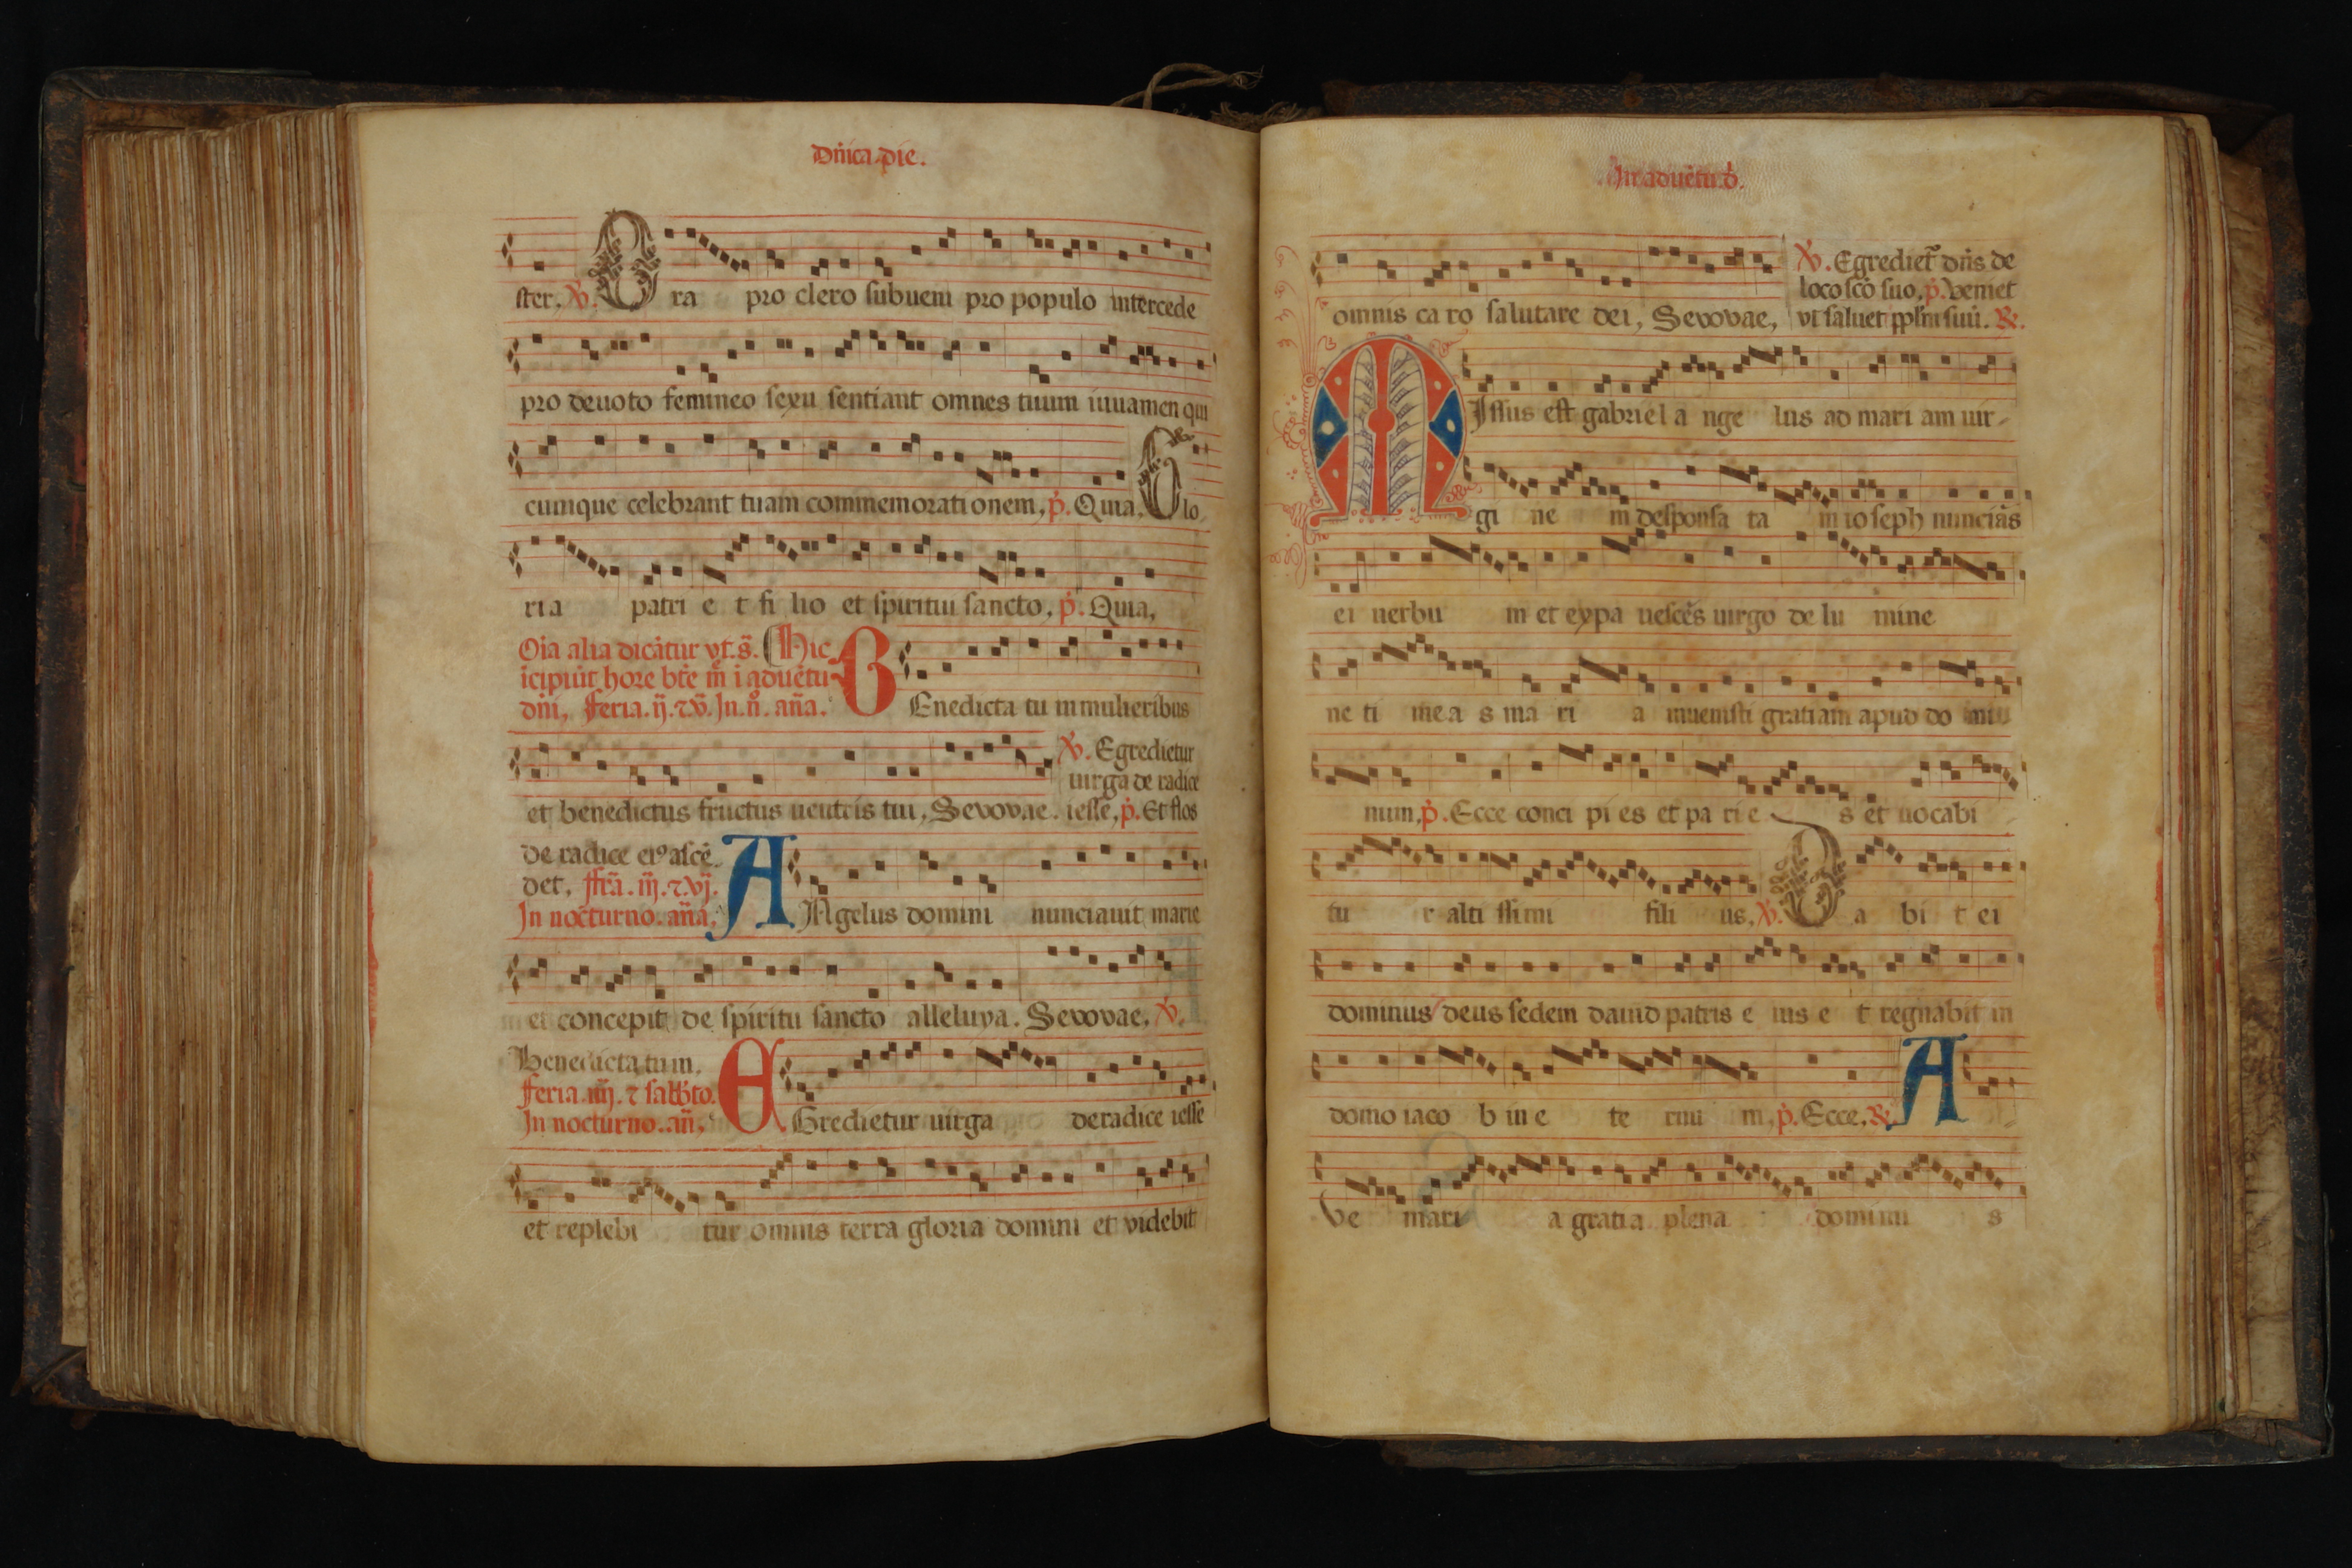 Dnica pie.
ster, V. Ora pro clero subueni pro populo intercede
pro deuoto femineo sexu sentiant omnes tuum iuuamen qui
cumque celebrant tuam commemorati onem, p. Quia, Glo
ria patri e t fi lio et spiritui sancto, p. Quia,
Oia alia dicatur vt. s. Hic
icipiut hore bte m i aduetu
dni, Feria. ij. ⁊ v. In. n. ana. BEnedicta tu in mulieribus
et benedictus fructus uentris tui, Seuouae. V. Egredietur
uirga de radice
iesse, p. Et flos
de radice ei⁹ ascē
det, ffia. iij. ⁊ vj.
In nocturno. ana, ANgelus domini nunciauit marie
et concepit de spiritu sancto alleluya. Seuouae, V.
Benedicta tu in.
feria. iiij. ⁊ sabbto.
In nocturno. an, EGredietur uirga de radice iesse
et replebi tur omnis terra gloria domini et videbit
In aduetu d.
omnis ca ro salutare dei, Seuouae, V. Egrediet dns de
loco sco suo, p. Veniet
vt saluet pplm suu. R.
MIssus est gabriel a nge lus ad mari am uir-
gi ne m desponsa ta m io seph nuncias
ei uerbu m et expa uesces uirgo de lu mine
ne ti mea s ma ri a inuenisti gratiam apud do mi
num, p. Ecce conci pi es et pa ri e s et uocabi
tu r alti ssimi fili us, V. Da bi t ei
dominus deus sedem dauid patris e ius e t regnabit in
domo iaco b in e te rnu m, p. Ecce, R. A
ve mari a gratia plena dominu s